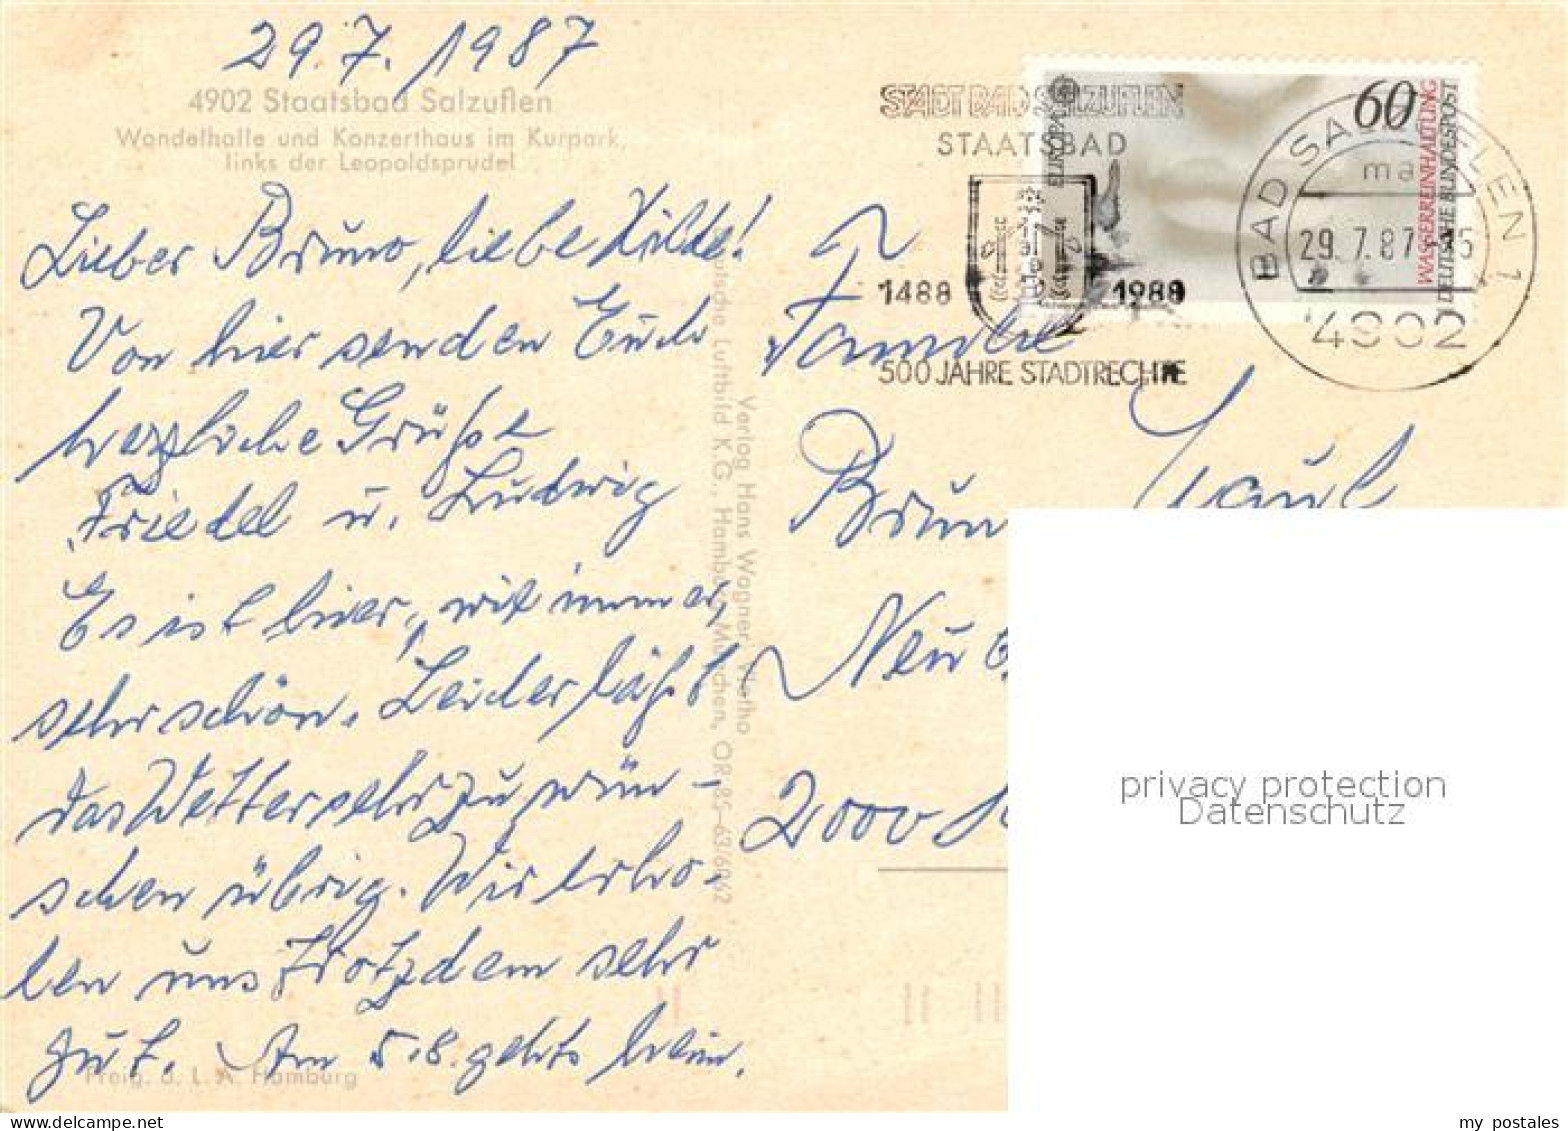 29.7.1987
4902 Staatsbad Salzuflen
Wandelhalle und Konzerthaus im Kurpark,
links der Leopoldsprudel
Lieber Bruno, liebe Hilde!
Von hier senden Euch
herzliche Grüße
Friedel u. Ludwig
Es ist hier, wie immer,
sehr schön. Leider läßt
das Wetter sehr zu wün-
schen übrig. Wir erho-
len uns trotzdem sehr
gut. Am 5.8. gehts heim.
Freig. d. L. A. Hamburg
Verlag Hans Wagner,
Luftbild K.G., Hamburg-München, OR 85-63/6062
STADT BAD SALZUFLEN
STAATSBAD
1488 1988
500 JAHRE STADTRECHTE
60
EUROPA
WASSERREINHALTUNG
DEUTSCHE BUNDESPOST
BAD SALZUFLEN 1
ma
29.7.87-15
4902
Familie
Brun
2000
privacy protection
Datenschutz
my postales